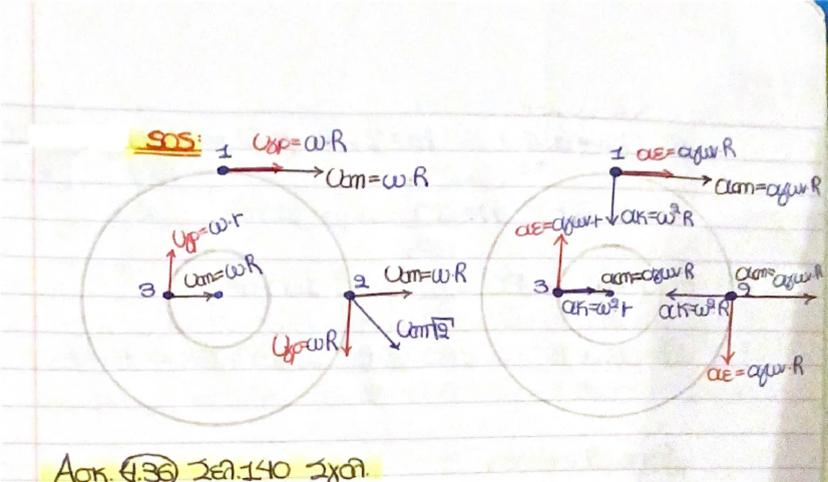 SOS:
1 υγρ=ω·R
υcm=ω·R
υγρ=ω·r
3 υcm=ωR
2 υcm=ω·R
υγρ=ωR
υcm√2
1 αε=αγων·R
αcm=αγων·R
ακ=ω²R
αε=αγων·r
3 αcm=αγων·R
ακ=ω²·r
2 αcm=αγων·R
ακ=ω²·R
αε=αγων·R
Ασκ. 4.36 Σελ.140 Σχολ.